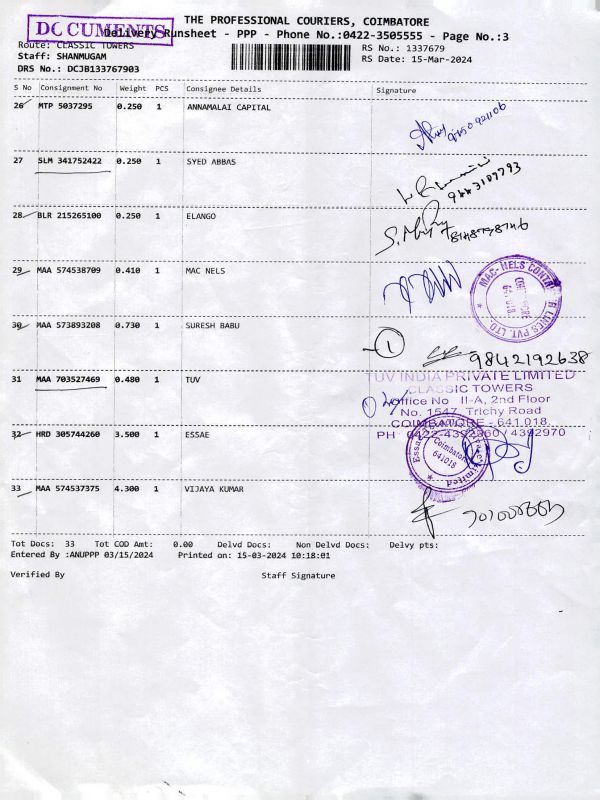 THE PROFESSIONAL COURIERS, COIMBATORE
DOCUMENTS
Delivery Runsheet - PPP - Phone No.:0422-3505555 - Page No.:3
Route: CLASSIC TOWERS
RS No.: 1337679
Staff: SHANMUGAM
RS Date: 15-Mar-2024
DRS No.: DCJB133767903
S No Consignment No Weight PCS Consignee Details Signature
26 MTP 5037295 0.250 1 ANNAMALAI CAPITAL
27 SLM 341752422 0.250 1 SYED ABBAS
9443107793
28 BLR 215265100 0.250 1 ELANGO
29 MAA 574538709 0.410 1 MAC NELS
MAC-NELS CONTAINER LINES PVT. LTD.
COIMBATORE
641 018
30 MAA 573893208 0.730 1 SURESH BABU
1
9842192638
31 MAA 703527469 0.480 1 TUV
TUV INDIA PRIVATE LIMITED
CLASSIC TOWERS
Office No II-A, 2nd Floor
No. 1547, Trichy Road
COIMBATORE - 641 018.
PH : 0422-4392960 / 4392970
32 HRD 305744260 3.500 1 ESSAE
Essae Limited
Coimbatore
641018
33 MAA 574537375 4.300 1 VIJAYA KUMAR
Tot Docs: 33 Tot COD Amt: 0.00 Delvd Docs: Non Delvd Docs: Delvy pts:
Entered By :ANUPPP 03/15/2024 Printed on: 15-03-2024 10:18:01
Verified By Staff Signature